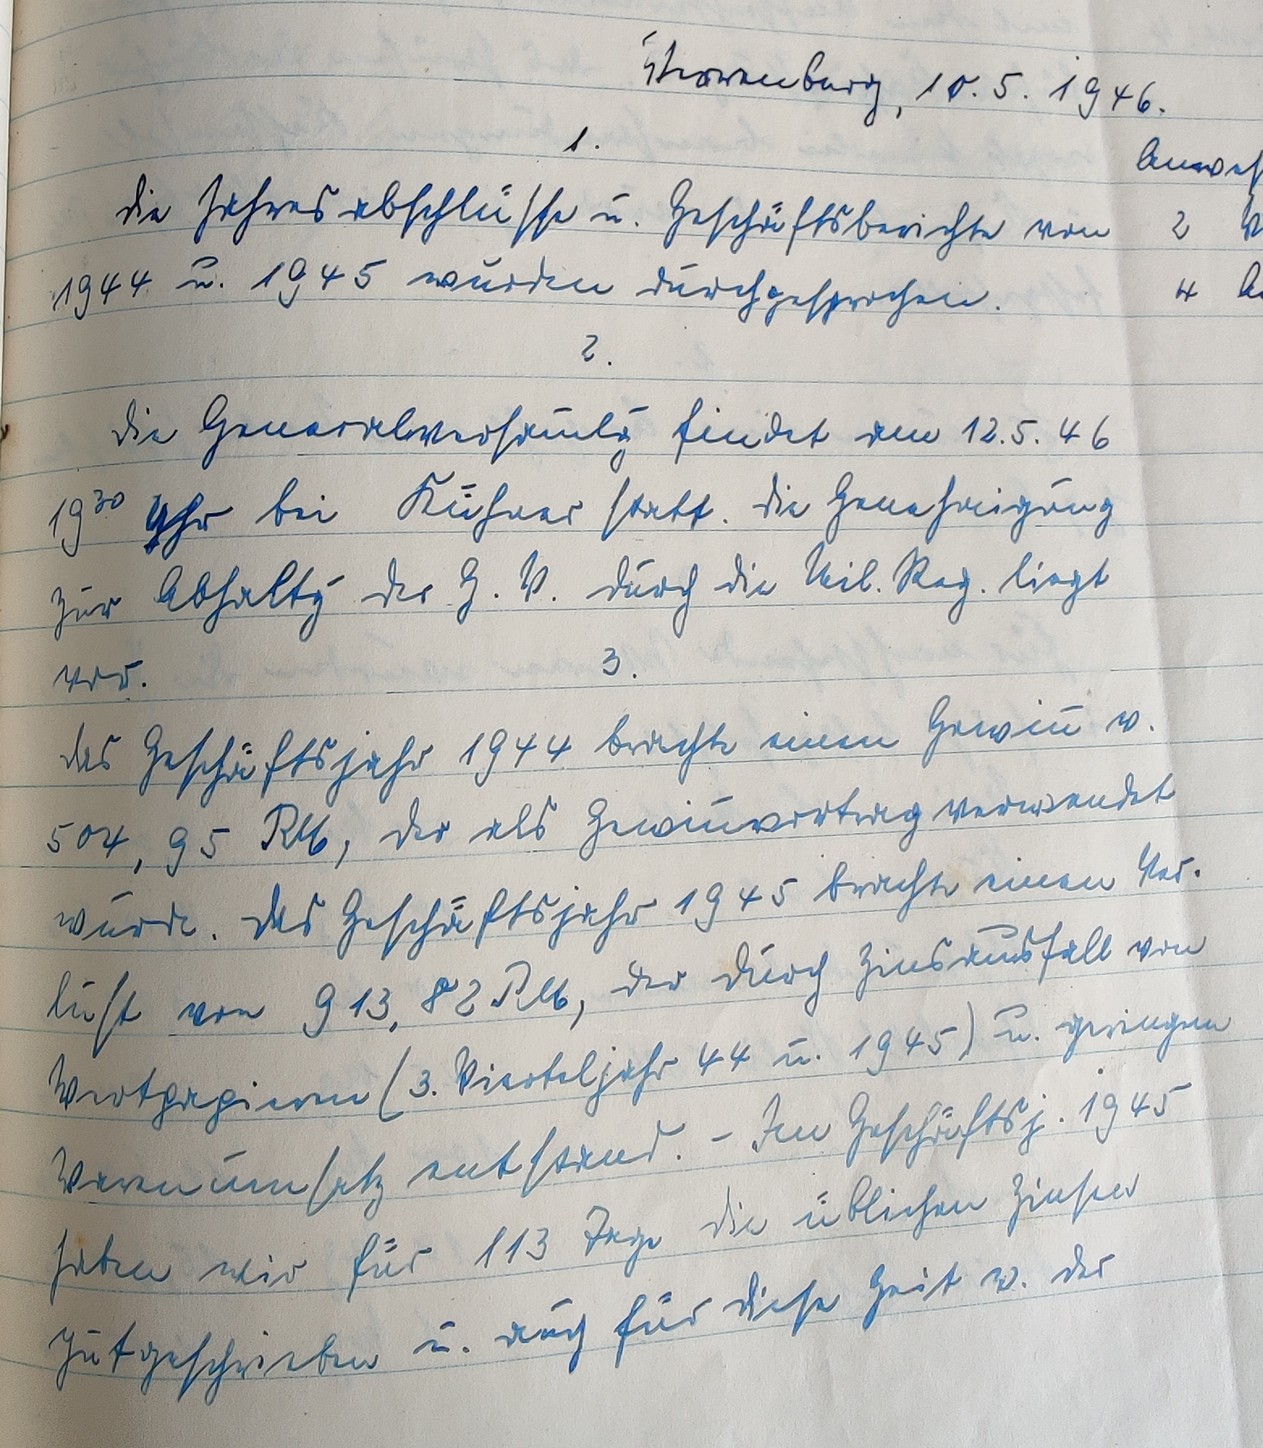 10.5.1946.
1.
Die Jahresabschlüsse u. Geschäftsberichte von 2
1944 u. 1945 wurden durchgesprochen. 4
2.
Die Generalversamlg findet am 12.5.46
19³⁰ Uhr bei Kühner statt. Die Genehmigung
zur Abhaltg der G. V. durch die Mil. Reg. liegt
vor.
3.
Das Geschäftsjahr 1944 brachte einen Gewin̄ v.
504,95 RM, der als Gewin̄vortrag verwendet
wurde. Das Geschäftsjahr 1945 brachte einen Ver-
lust von 913,82 RM, der durch Zinsausfall von
Wertpapieren (3. Vierteljahr 44 u. 1945) u. geringen
Warenumsatz entstand. - Im Geschäftsj. 1945
haben wir für 113 Tage die üblichen Zinsen
gutgeschrieben u. auch für diese Zeit v. der